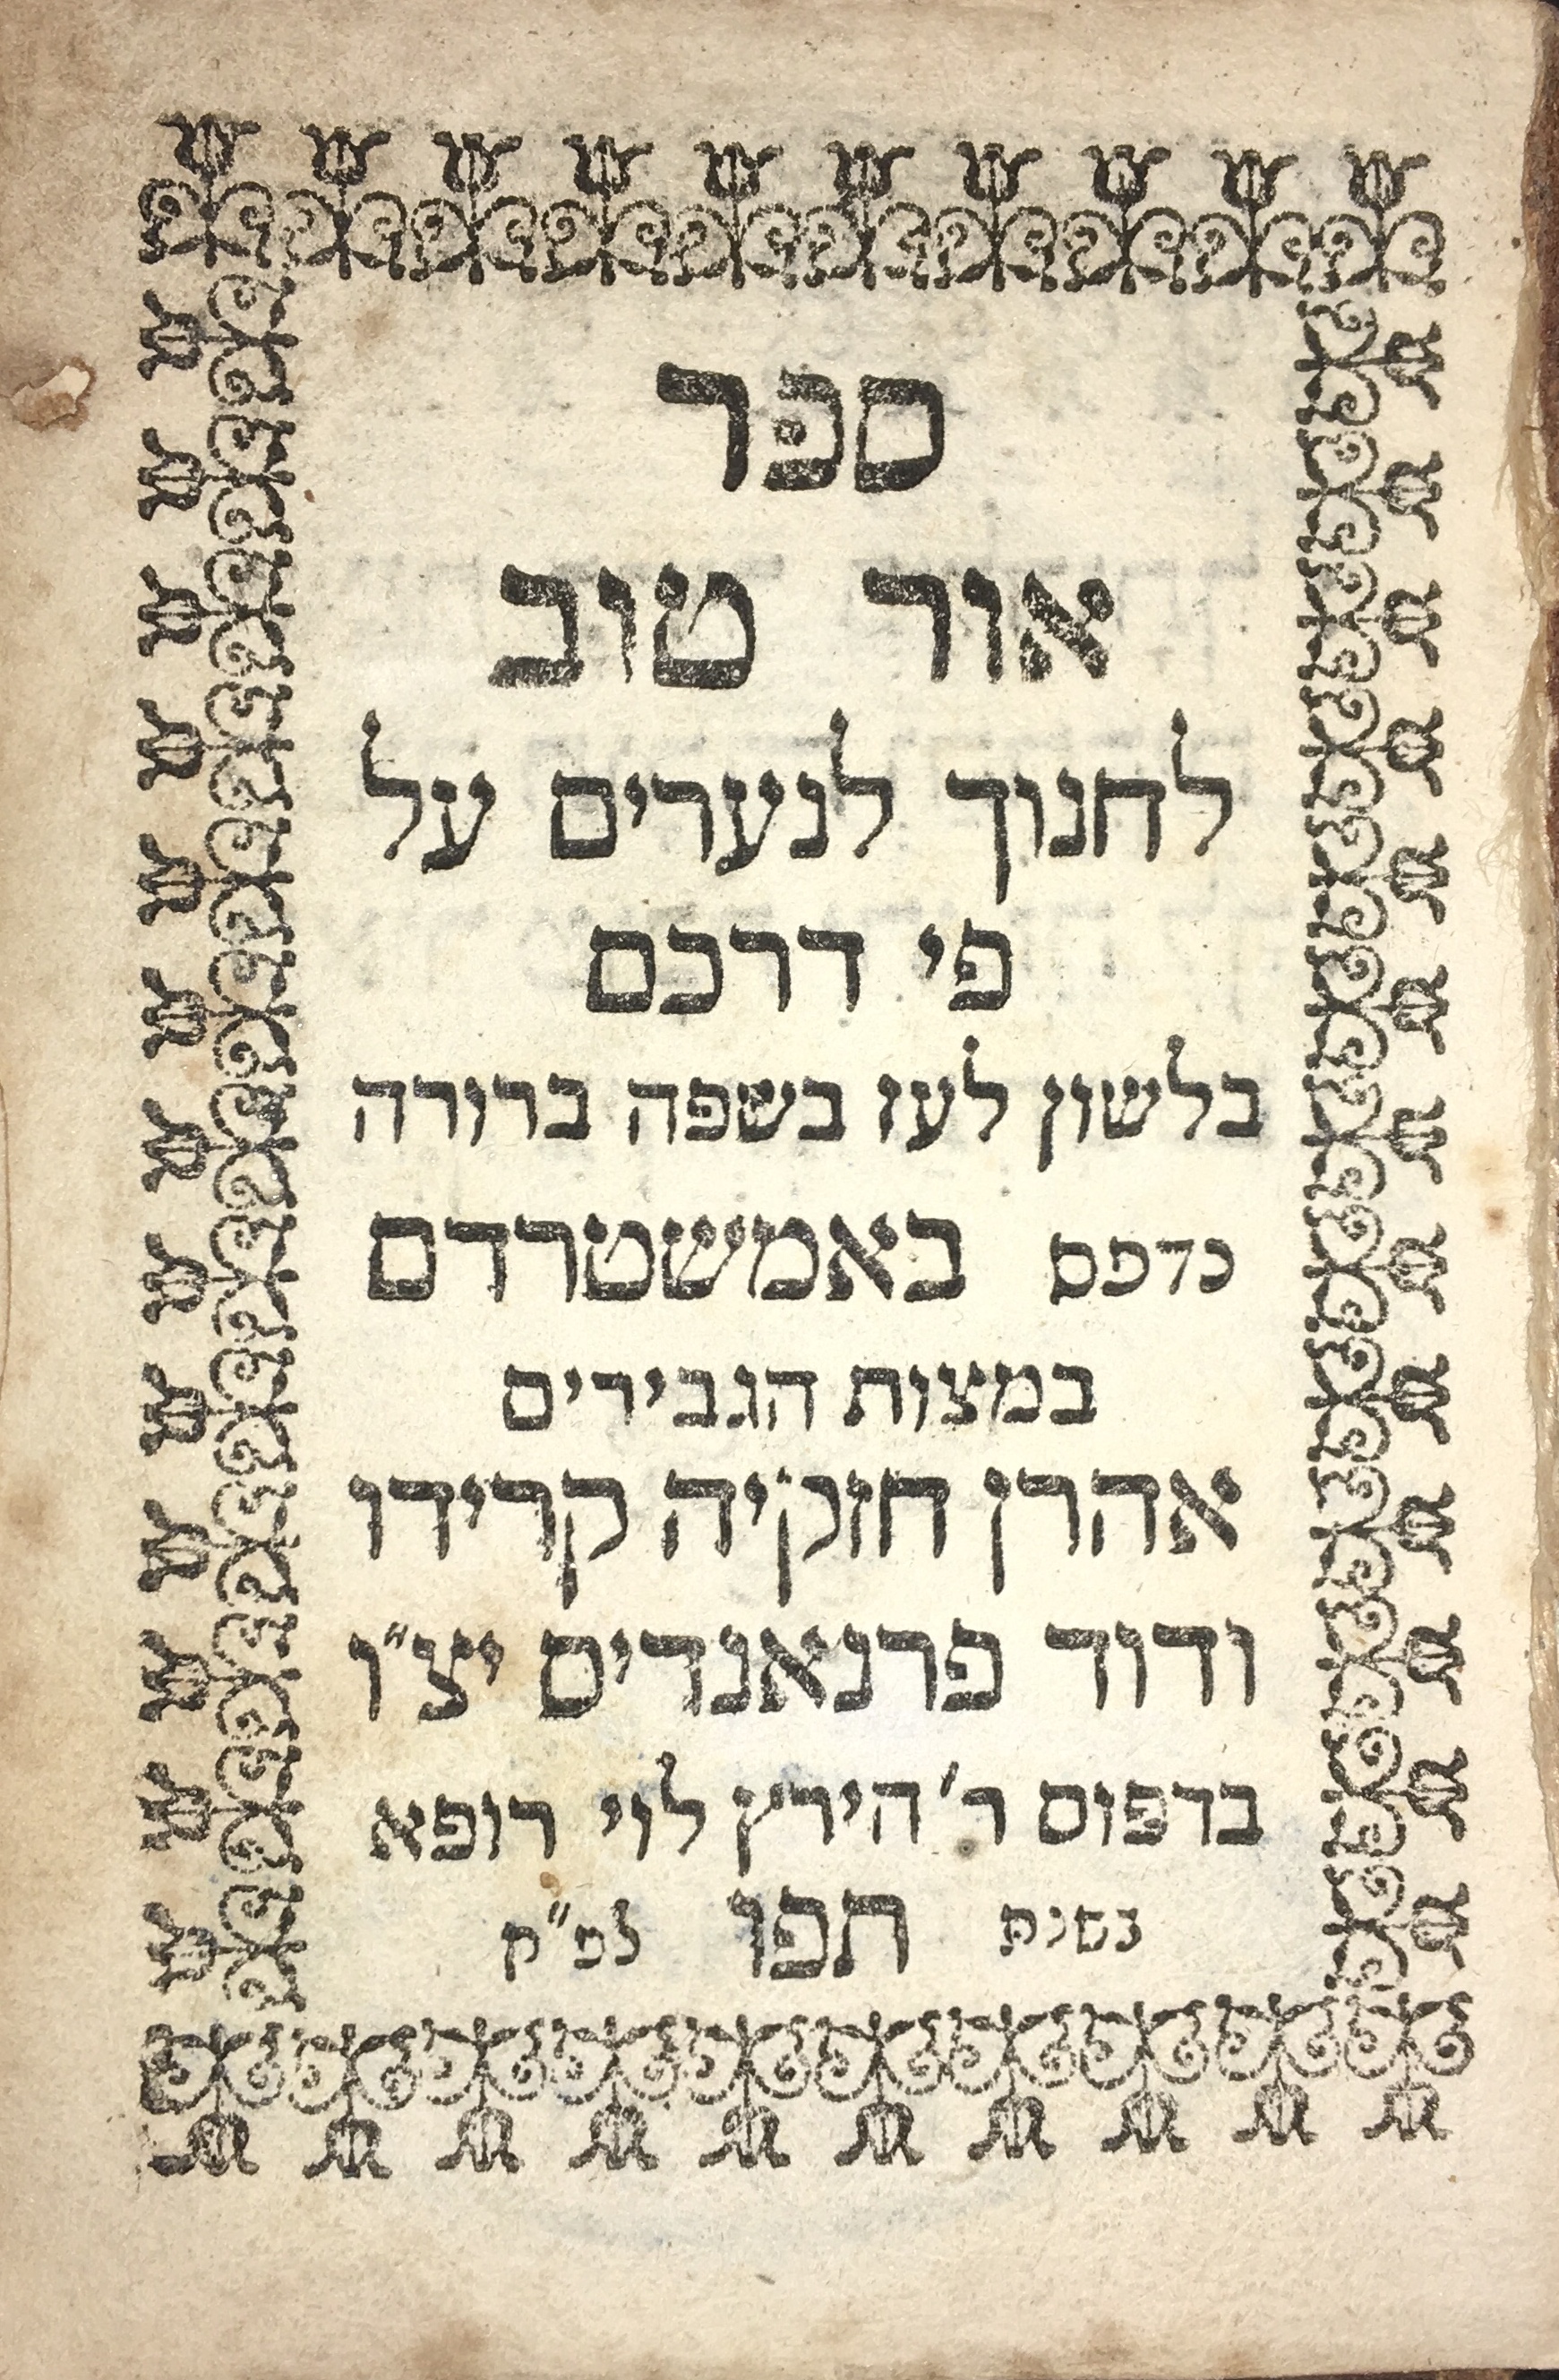 ספר
אור טוב
לחנוך לנערים על
פי דרכם
בלשון לעז בשפה ברורה
נדפס באמשטרדם
במצות הגבירים
אהרן חזקיה קרידו
ודוד פרנאנדים יצ״ו
בדפוס ר׳ הירץ לוי רופא
בשנת תפו לפ״ק